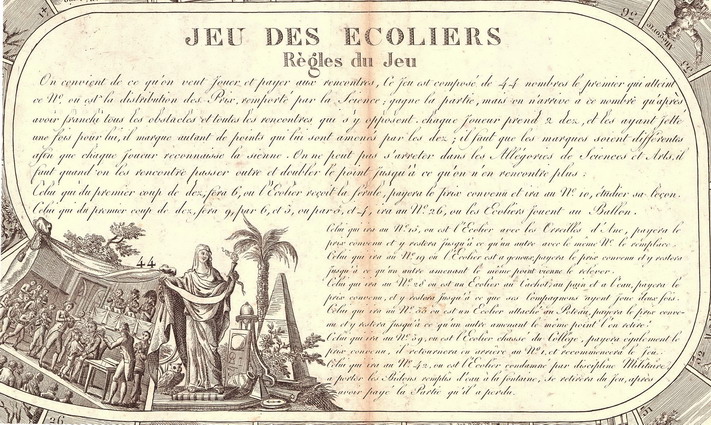 JEU DES ECOLIERS
Règles du Jeu
On convient de ce qu'on veut jouer et payer aux rencontres, Ce Jeu est composé de 44 nombres le premier qui atteint
ce N.º où est la distribution des Prix, remporté par la Science, gagne la partie, mais on n'arrive a ce nombre qu'après
avoir franchi tous les obstacles et toutes les rencontres qui s'y opposent. chaque Joueur prend 2 dez, et les ayant jetté
une fois pour lui, il marque autant de points qui lui sont amenés par les dez ; il faut que les marques soient différentes
afin que chaque Joueur reconnaisse la sienne. On ne peut pas s'arreter dans les Allégories de Sciences et Arts, il
faut quand on les rencontre passer outre et doubler le point jusqu'à ce qu'on n'en rencontre plus :
Celui qui du premier coup de dez, fera 6, ou l'Ecolier reçoit la férule, payera le prix convenu et ira au N.º 10, étudier sa leçon.
Celui qui du premier coup de dez, fera 9, par 6, et 3, ou par 5, et 4, ira au N.º 26, ou les Ecoliers Jouent au Ballon.
Celui qui ira au N.º 15, ou est l'Ecolier avec les Oreilles d'Ane, payera le
prix convenu et y restera jusqu'à ce qu'un autre avec le même N.º le remplace.
Celui qui ira au N.º 19 où l'Ecolier est a genoux, payera le prix convenu et y restera
jusqu'à ce qu'un autre amenant le même point vienne le relever.
Celui qui ira au N.º 28 ou est un Ecolier au Cachot, au pain et a l'eau, payera le
prix convenu, et y restera jusqu'à ce que ses Compagnons ayent joué deux fois.
Celui qui ira au N.º 33 ou est un Ecolier attaché au Poteau, payera le prix conve-
nu et y restera jusqu'à ce qu'un autre amenant le même point l'en retire.
Celui qui ira au N.º 39, ou est l'Ecolier chassé du Collège, payera également le
prix convenu, il retournera en arrière au N.º 1, et recommencera le Jeu.
Celui qui ira au N.º 42, ou est l'Ecolier condamné par discipline Militaire,
a porter les Bidons remplis d'eau à la fontaine, se retirera du Jeu, après
avoir payé la Partie qu'il a perdu.
44
26